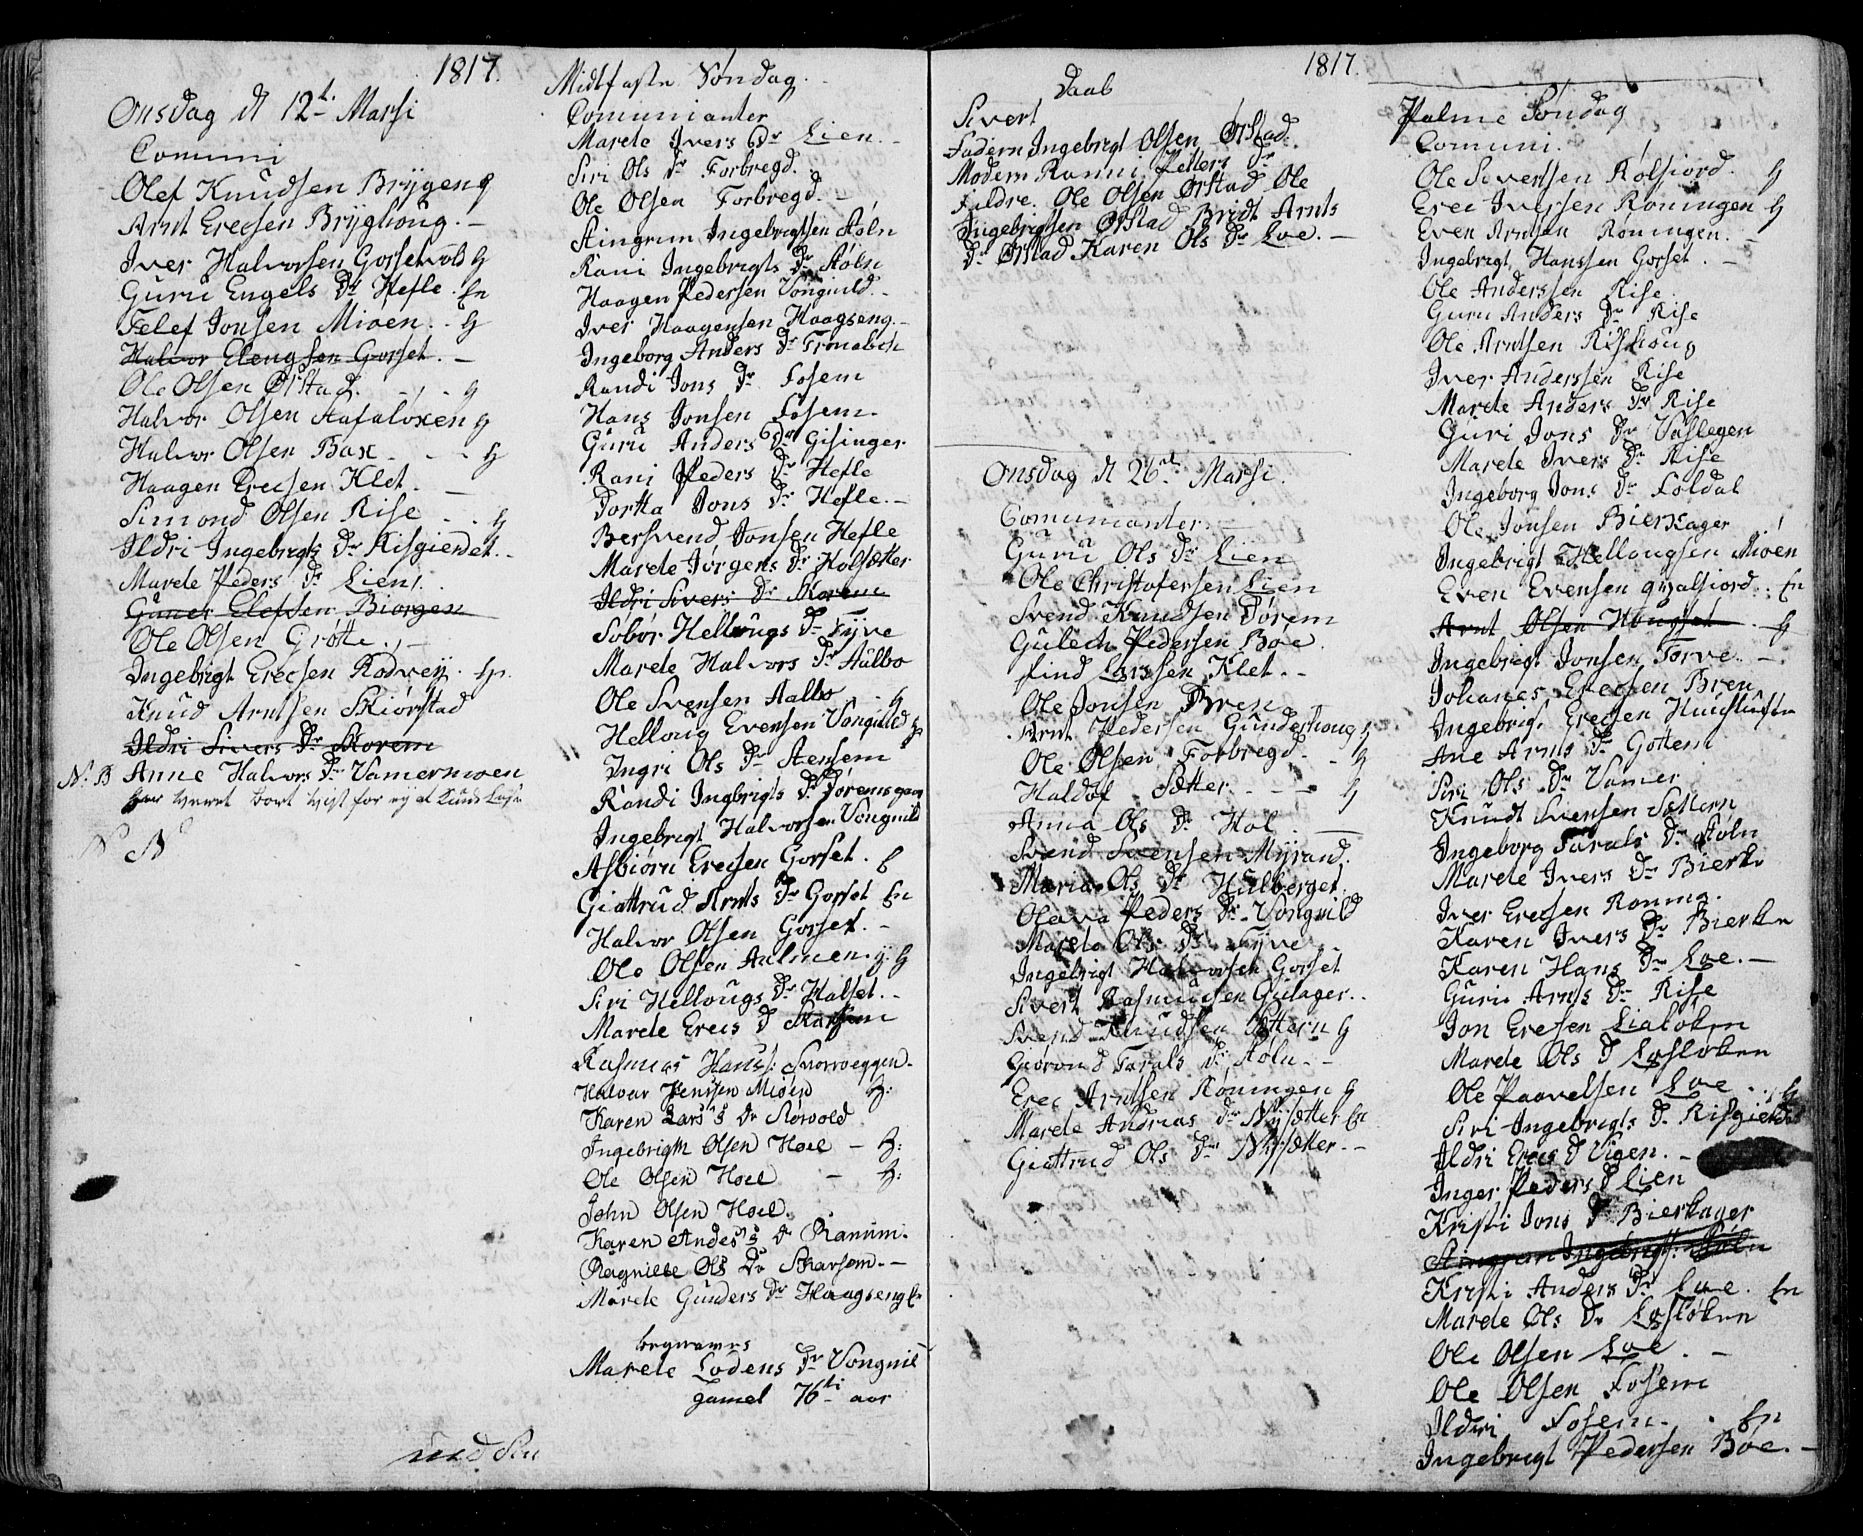 1817.
Onsdag d 12t Marsi
Comuni
Olef Knudsen Brygen g
Arnt Erecsen Bryghoug. –
Iver Halvorsen Gorsetvold g
Guru Engels Dr Hefle. En
Felef Jonsen Mioen. . g
Halvor Elengsen Gorset. –
Ole Olsen Ørstad. . . . g
Halvor Olsen Aafaloxen g
Halvor Olsen Bax . . . g
Haagen Erecsen Klet. –
Simond Olsen Rise . . g
Ildri Ingebrigts Dr Risgierdet. –
Marete Peders Dr Lien.
Guner Elefsen Biorgen
Ole Olsen Grötte. –
Ingebrigt Erecsen Rodvey. En.
Knud Arntsen Skiørstad
Ildri Sivers Dr Skorem
N. B Anne Halvors Dr Vamermoen
har veret bort vist for
N N
Midtfaste Søndag.
Comunianter
Marete Ivers Dr Lien. –
Siri Ols Dr Forbregd.
Ole Olsen Forbregd. –
Stingrim Ingebrigtsen Støln
Rani Ingebrigts Dr Støln
Haagen Pedersen Vongnild. –
Iver Haagensen Haagseng. –
Ingeborg Anders Dr
Randi Jons Dr Fosem
Hans Jonsen Fosem.
Guru Anders Dr Gisinger
Rani Peders Dr Hefle
Dortta Jons Dr Hefle. –
Bersvend Jonsen Hefle
Marete Jørgens Dr Holsætter
Ildri Sivers Dr Skorem
Sobør Hellougs Dr Fyve
Marete Halvors Dr Aalbo
Ole Svensen Aalbo . . g
Helloug Evensen Vongnild g
Ingri Ols Dr Stensem
Randi Ingbrigts Dr
Ingebrigt Halvorsen Vongnild
Asbiørn Erecsen Gorset. E
Giattrud Arnts Dr Gorset En
Halvor Olsen Gorset. –
Ole Olsen Aalmen. g. g
Siri Hellougs Dr Halset. –
Marete Erecs D
Rasmus Hans: Snorroeggen.
Halvar Jenssen Mioen H:
Karen Lars's Dr Størvold
Ingebrigth Olsen Hoel – H:
Ole Olsen Hoel – H:
John Olsen Hoel.
Karen Andes's Dr Ranum.
Ragnille Ols Dr Skarsem. –
Marete Gunders Dr Haagseng En
begraves
Marete Lodens Dr Vongnil
gamel 76ti aar
1817.
Daab
Sivert
Fadern Ingebrigt Olsen Ørstad.
Modern Ranni Petters Dr
Faldre. Ole Olsen Ørstad Ole
Ingebrigtsen Ørstad Bridt Arnts
Dr Ørstad Karen Ols Dr Loe. –
Onsdag d 26d Marsi.
Comunianter. –
Guru Ols Dr Lien
Ole Christofersen Lien
Svend Knudsen Dørem
Gulech Pedersen Boe.
find Larssen Klet. –
Ole Jonsen Bren
Arnt Pedersen Gundershoug g
Ole Olsen Forbregd. . g
Haldof Sætter . . . g
Anna Ols Dr Hol . –
Svend Svensen Myrand.
Maria Ols Dr Hulberget.
Olava Peders Dr Vongnild
Marete Ols Dr Fyve
Ingebrigt Halvorsen Gorset
Sivert Rasmussen Gulager. .
Svend Knudsen Sættern g
Giørond Tarals Dr Støln. –
Erec Arntsen Røningen g
Marete Andrias Dr Nysætter En
Giattrud Ols Dr Nysætter. –
Palme Søndag
Comuni.
Ole Sivertsen Rolsiord. g
Erec Iversen Røningen g
Even Arntsen Røningen. –
Ingebrigt Hanssen Gorset. –
Ole Anderssen Rise.
Guru Anders Dr Rise
Ole Arntsen Rishoug
Iver Anderssen Rise
Marete Anders Dr Rise
Guri Jons Dr Vaslegen
Marete Ivers Dr Rise
Ingeborg Jons Dr Foldal
Ole Jonsen Bierkager
Ingebrigt Hellougsen Mioen
Even Evensen . . En
Arnt Olsen Hougset . . g
Ingebrigt Jonsen Torve. –
Johanes Erecsen Bren
Ingebrigt Erecsen
Ane Arnts Dr Gottem
Siri Ols Dr Vamer
Knudt Svensen Sættern
Ingeborg Tarals Dr Støln
Marete Ivers Dr Bierke
Iver Erecsen Ronning.
Karen Ivers Dr Bierken
Karen Hans Dr Loe. –
Guru Arnts Dr Rise
Jon Erecsen Lialøken
Marete Ols D Losløken
Ole Paavelsen Loe . . g
Siri Ingebrigts Dr Risgierdet
Ildri Erecs D Vigen. –
Inger Peders D Lien
Kristi Jons D Bierkager
Stingrim Ingebrigts: Støln
Kristi Anders Dr Loe. En
Marete Ols Dr Losløken
Ole Olsen Loe . –
Ole Olsen Fosem
Ildri Fosem. . En
Ingebrigt Pedersen Boe. –